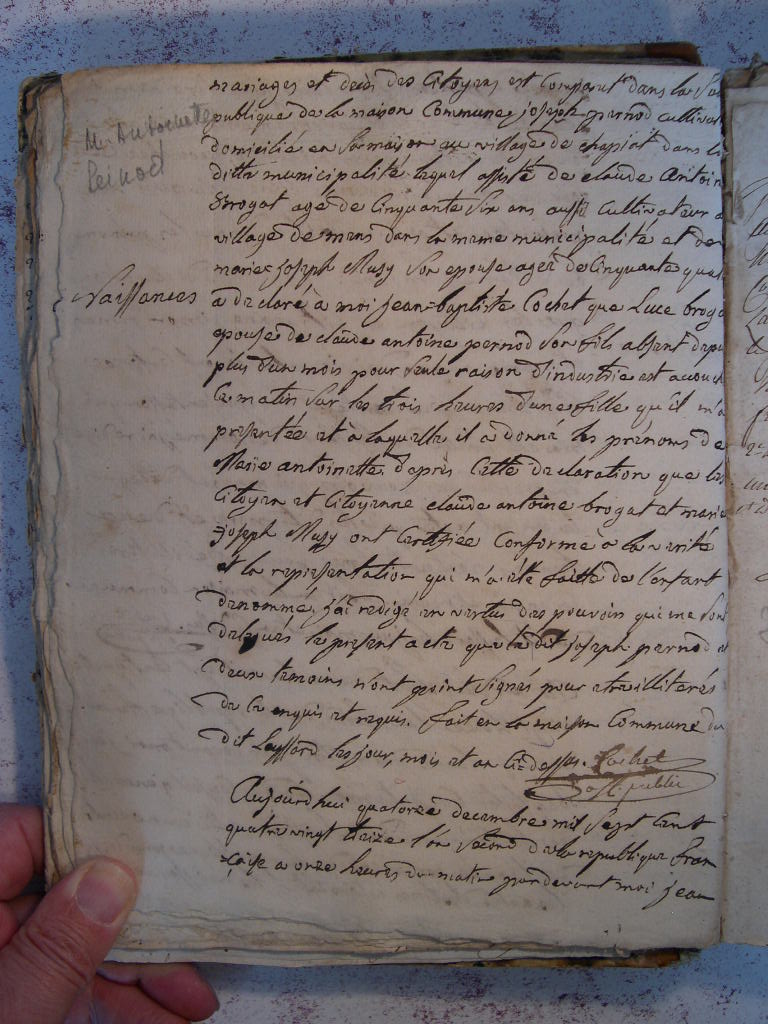 mariages et décès des Citoyens est Comparut dans la Sal
publique de la maison Commune joseph pernod cultivat
M. Antoinette
pernod
domicilié en Sa maison au village de chapiat dans la
ditte municipalité lequel assisté de claude antoin
brogat agé de Cinquante Six ans aussi Cultivateur a
village de mens dans la meme municipalité et de
marie joseph Musy Son epouse agée de Cinquante quat
Naissances
a déclaré à moi jean=baptiste Cochet que Luce broga
epouse de claude antoine pernod Son fils absent depu
plus d'un mois pour Seule raison d'industrie est accouch
Ce matin Sur les trois heures d'une fille qu'il m'a
présentée et à laquelle il a donné les prénoms de
Marie antoinette. d'après Cette déclaration que les
Citoyen et Citoyenne claude antoine brogat et marie
=joseph Musy ont Certifiée Conforme à la verité
et la représentation qui m'a été faitte de l'enfant
dénommé, j'ai redigé en vertus des pouvoirs qui me Son
delegués le present acte que le dit joseph pernod et
deux temoins n'ont point Signés pour etre illiterés
de Ce enquis et requis. fait en la maison Commune du
dit Leyssard les jour, mois et an Ci=dessus. Cochet
off. public
Aujourd'hui quatorze decembre mil Sept Cent
quatre vingt treize l'an Second de la republique fran
=çaise a onze heures du matin pardevant moi jean